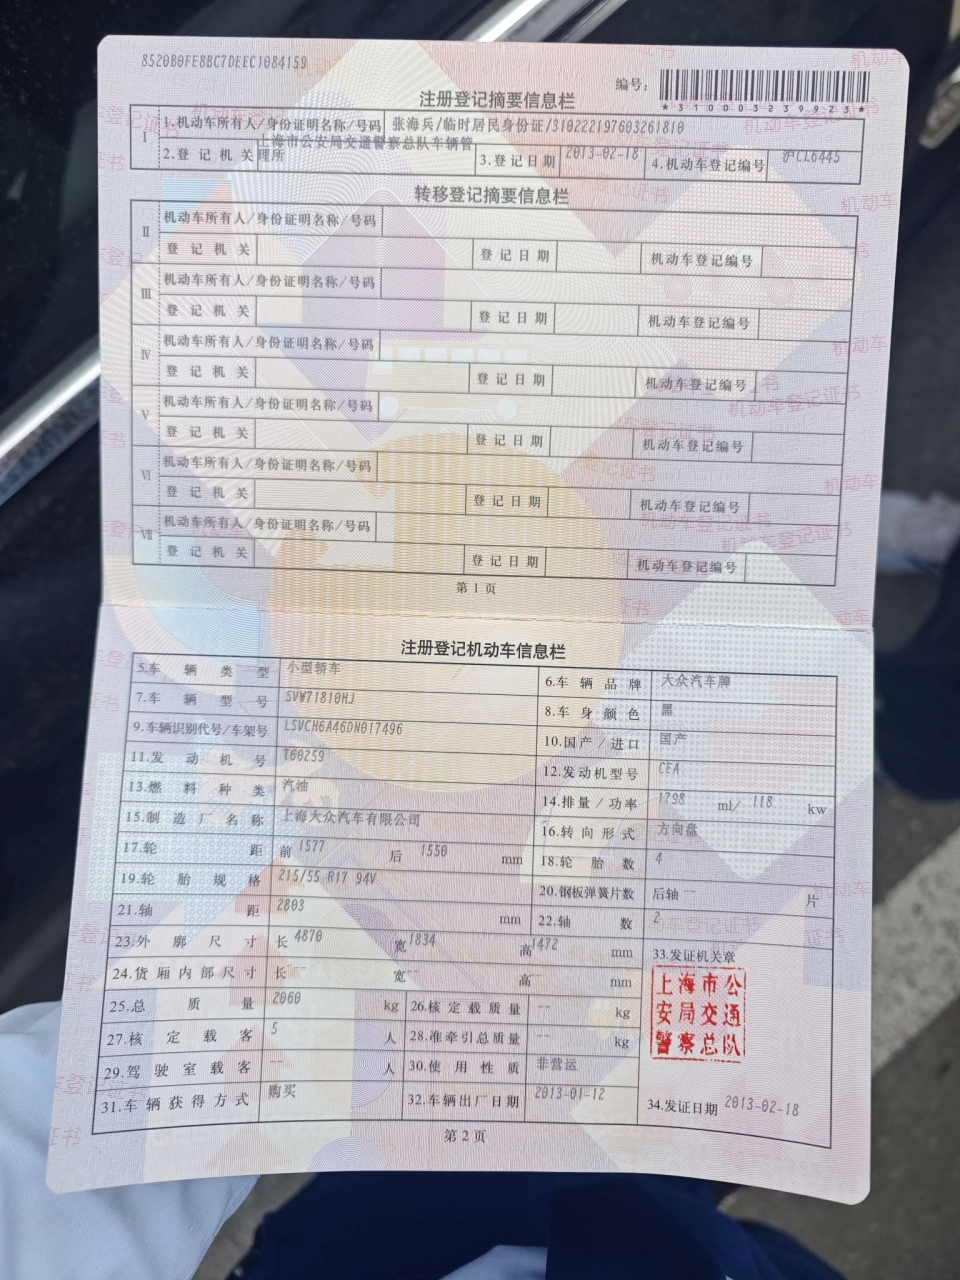 8520B0FE8BC7DEEC1084159
编号：
*310003239923*
注册登记摘要信息栏
I 1.机动车所有人/身份证明名称/号码 张海兵/临时居民身份证/310222197603261810
2.登记机关 上海市公安局交通警察总队车辆管理所 3.登记日期 2013-02-18 4.机动车登记编号 沪CL6445
转移登记摘要信息栏
II 机动车所有人/身份证明名称/号码
登记机关 登记日期 机动车登记编号
III 机动车所有人/身份证明名称/号码
登记机关 登记日期 机动车登记编号
IV 机动车所有人/身份证明名称/号码
登记机关 登记日期 机动车登记编号
V 机动车所有人/身份证明名称/号码
登记机关 登记日期 机动车登记编号
VI 机动车所有人/身份证明名称/号码
登记机关 登记日期 机动车登记编号
VII 机动车所有人/身份证明名称/号码
登记机关 登记日期 机动车登记编号
第1页
注册登记机动车信息栏
5.车辆类型 小型轿车 6.车辆品牌 大众汽车牌
7.车辆型号 SVW71810HJ 8.车身颜色 黑
9.车辆识别代号/车架号 LSVCH6A46DN017496 10.国产/进口 国产
11.发动机号 T60259 12.发动机型号 CEA
13.燃料种类 汽油 14.排量/功率 1798 ml/ 118 kw
15.制造厂名称 上海大众汽车有限公司 16.转向形式 方向盘
17.轮距 前 1577 后 1550 mm 18.轮胎数 4
19.轮胎规格 215/55 R17 94V 20.钢板弹簧片数 后轴 -- 片
21.轴距 2803 mm 22.轴数 2
23.外廓尺寸 长 4870 宽 1834 高 1472 mm 33.发证机关章
24.货厢内部尺寸 长 -- 宽 -- 高 -- mm
25.总质量 2060 kg 26.核定载质量 -- kg
27.核定载客 5 人 28.准牵引总质量 -- kg
29.驾驶室载客 -- 人 30.使用性质 非营运
31.车辆获得方式 购买 32.车辆出厂日期 2013-01-12 34.发证日期 2013-02-18
上海市公
安局交通
警察总队
第2页